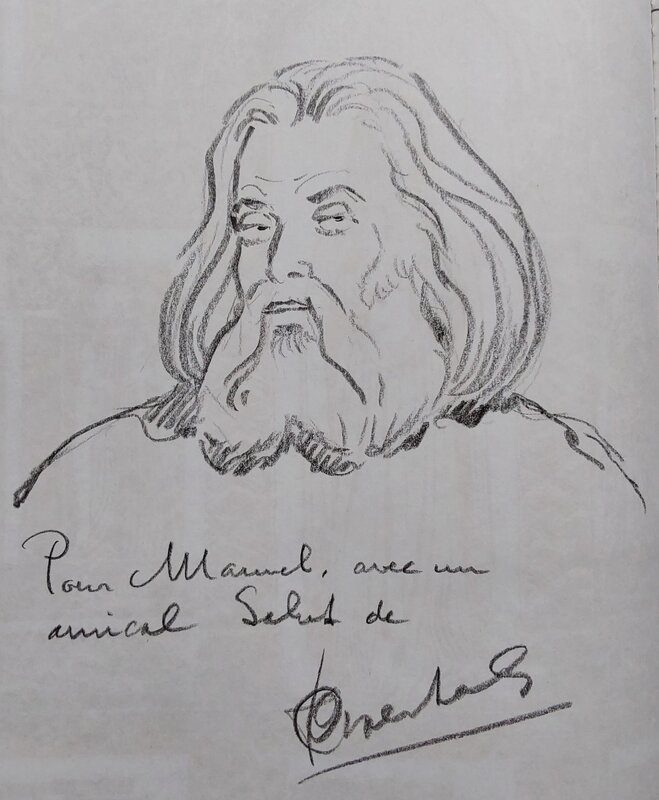 Pour Manuel, avec un
amical Salut de